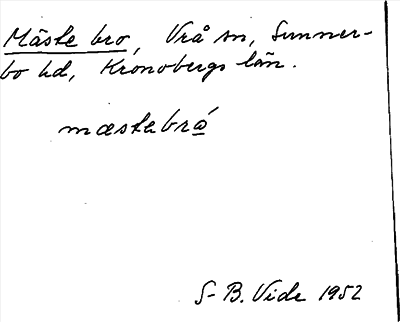 Mäste bro, Vrå sn, Sunner-
bo hd, Kronobergs län.
mæstebrǫ́
S-B. Vide 1952